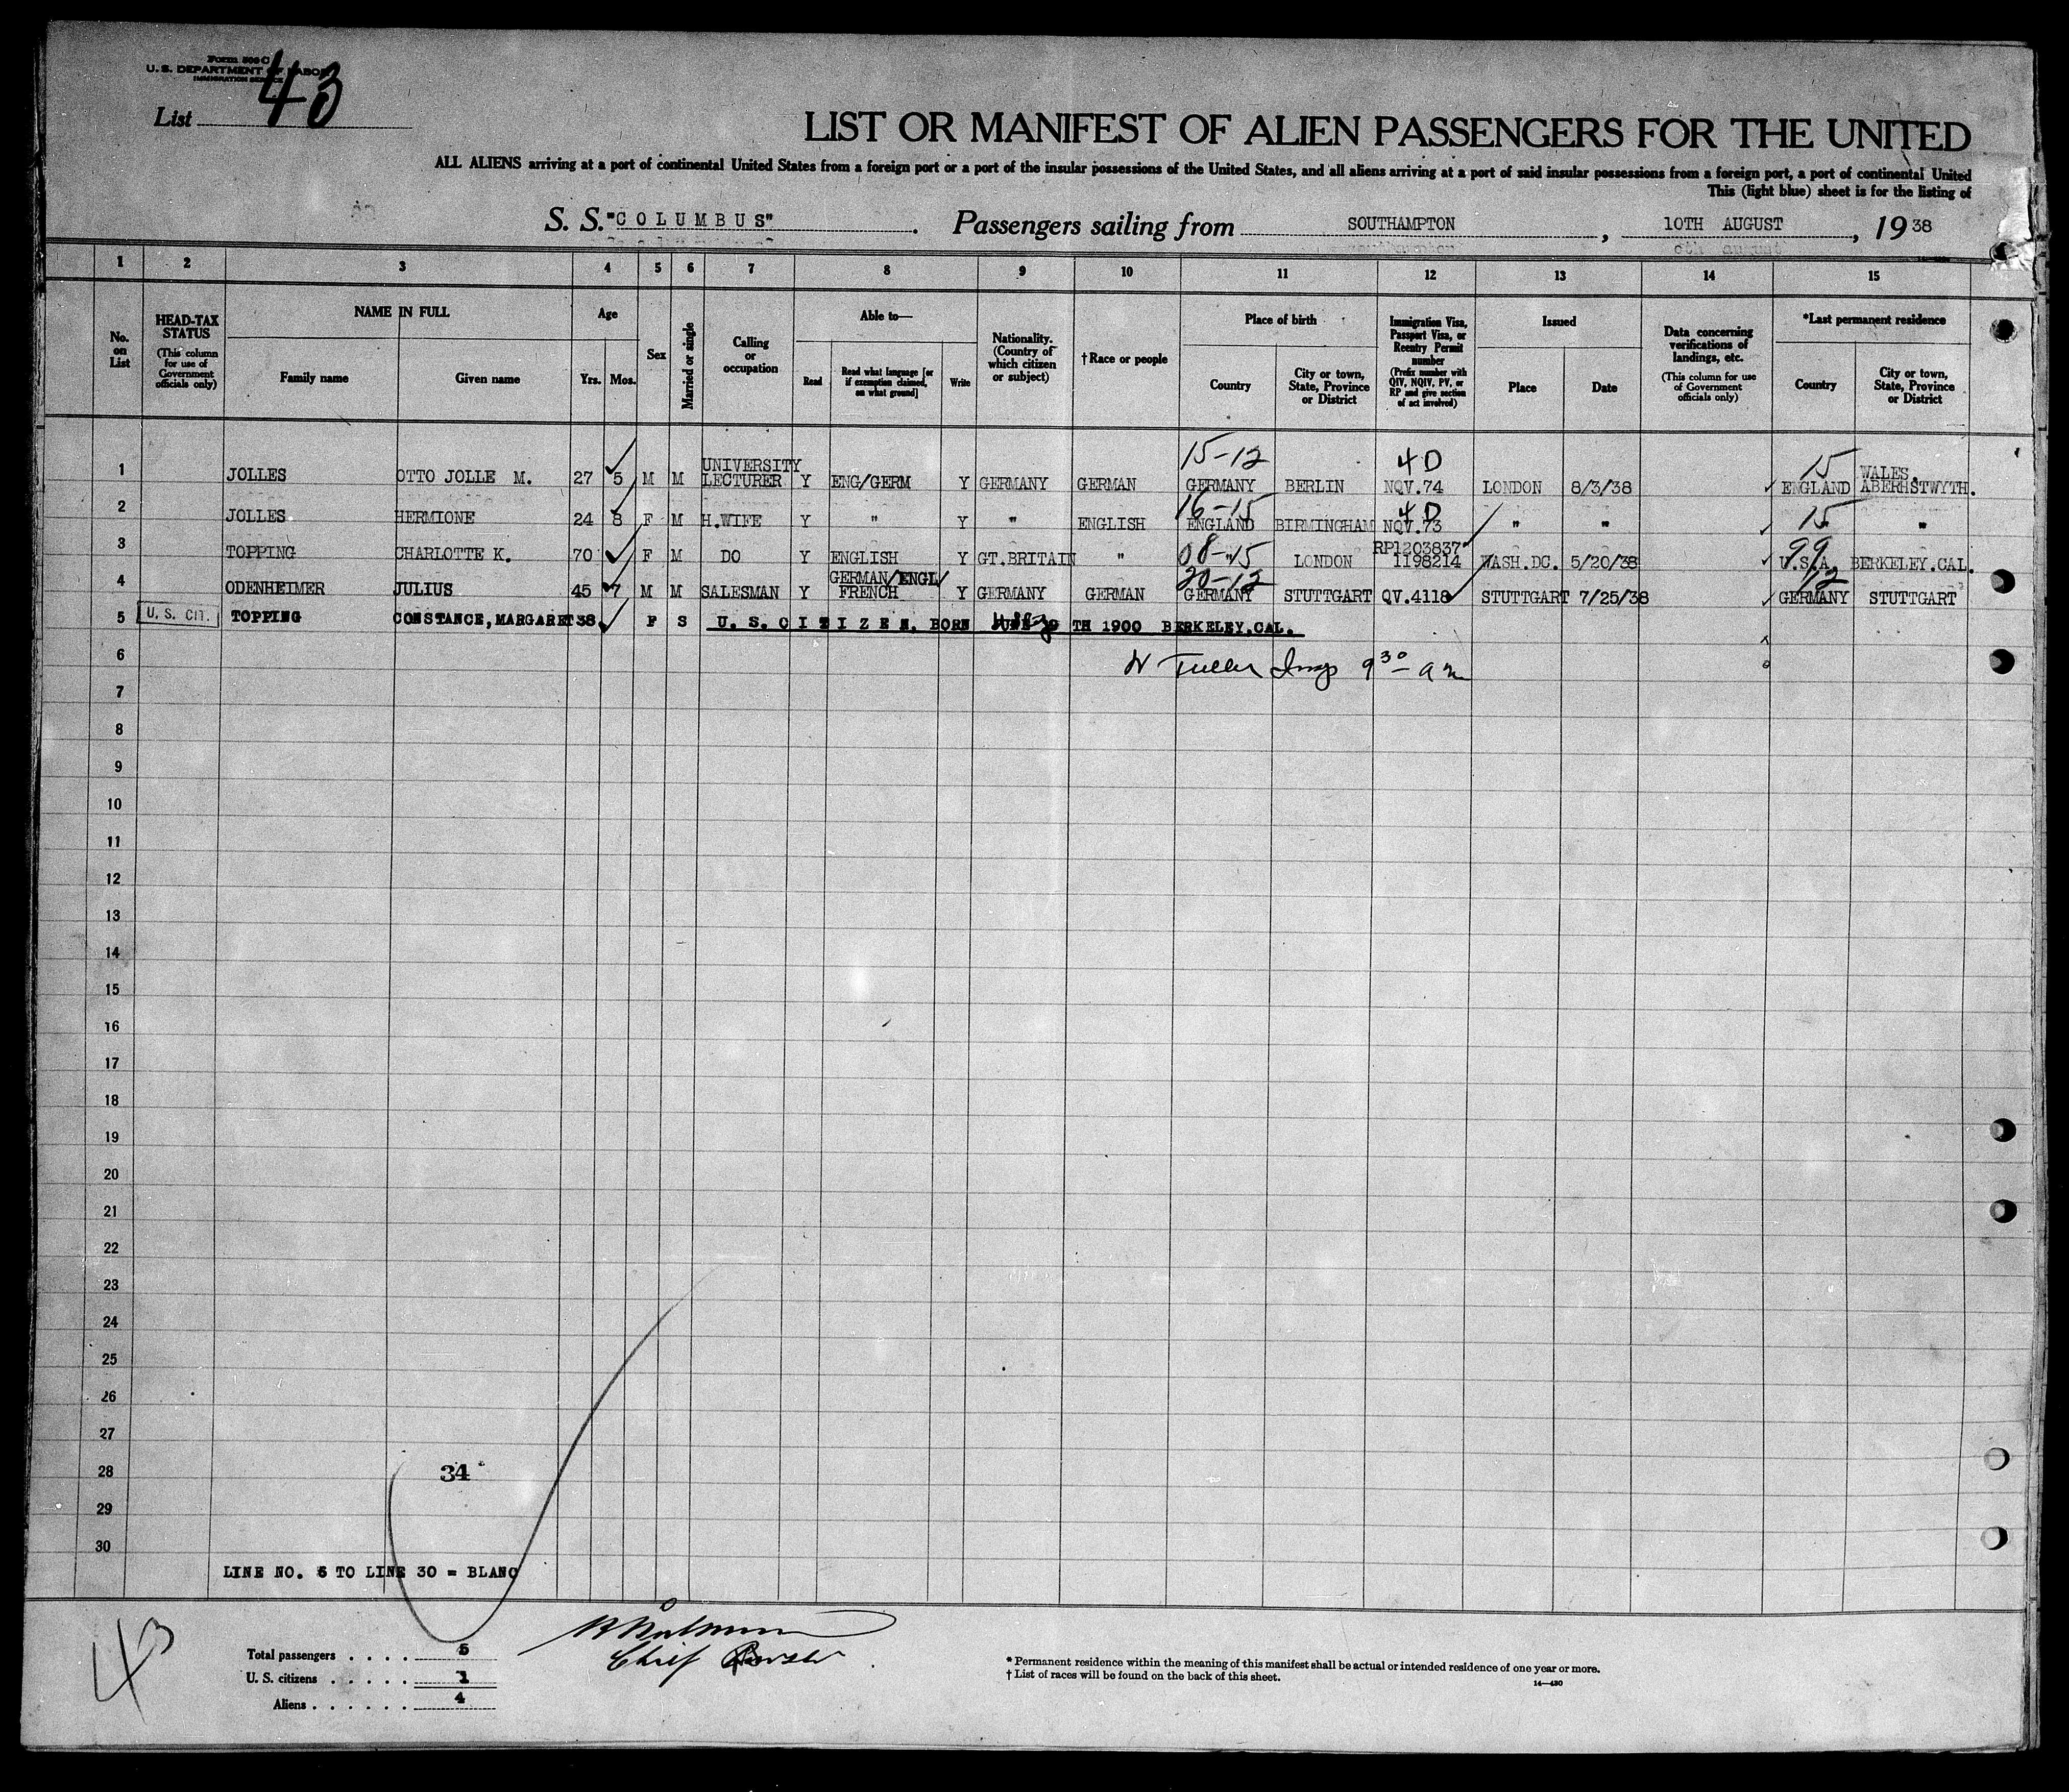 Form 500 C
U. S. DEPARTMENT OF LABOR
IMMIGRATION SERVICE
List 43
LIST OR MANIFEST OF ALIEN PASSENGERS FOR THE UNITED
ALL ALIENS arriving at a port of continental United States from a foreign port or a port of the insular possessions of the United States, and all aliens arriving at a port of said insular possessions from a foreign port, a port of continental United
This (light blue) sheet is for the listing of
S. S. "COLUMBUS" . Passengers sailing from SOUTHAMPTON , 10TH AUGUST , 19 38
1 2 3 4 5 6 7 8 9 10 11 12 13 14 15
No. on List
HEAD-TAX STATUS (This column for use of Government officials only)
NAME IN FULL
Family name Given name
Age
Yrs. Mos.
Sex
Married or single
Calling or occupation
Able to—
Read
Read what language [or if exemption claimed, on what ground]
Write
Nationality. (Country of which citizen or subject)
†Race or people
Place of birth
Country
City or town, State, Province or District
Immigration Visa, Passport Visa, or Reentry Permit number (Prefix number with QIV, NQIV, PV, or RP and give section of act involved)
Issued
Place Date
Data concerning verifications of landings, etc. (This column for use of Government officials only)
*Last permanent residence
Country
City or town, State, Province or District
15-12 4D 15
1 JOLLES OTTO JOLLE M. 27 5 M M UNIVERSITY LECTURER Y ENG/GERM Y GERMANY GERMAN GERMANY BERLIN NQV.74 LONDON 8/3/38 ENGLAND WALES. ABERHSTWYTH.
16-15 4D 15
2 JOLLES HERMIONE 24 8 F M H.WIFE Y " Y " ENGLISH ENGLAND BIRMINGHAM NQV.73 " " " "
08-15 99
3 TOPPING CHARLOTTE K. 70 F M DO Y ENGLISH Y GT.BRITAIN " " LONDON RP1203837 1198214 WASH.DC. 5/20/38 U.S.A. BERKELEY.CAL.
20-12 12
4 ODENHEIMER JULIUS 45 7 M M SALESMAN Y GERMAN/ENGL/ FRENCH Y GERMANY GERMAN GERMANY STUTTGART QV.4118 STUTTGART 7/25/38 GERMANY STUTTGART
5 U. S. CIT. TOPPING CONSTANCE,MARGARET 38 F S U. S. C I T I Z E N, BORN JUNE TH 1900 BERKELEY,CAL.
6 Fuller Insp 9 30 am
7
8
9
10
11
12
13
14
15
16
17
18
19
20
21
22
23
24
25
26
27
28 34
29
30
LINE NO. 6 TO LINE 30 = BLANC
43
Total passengers . . . . 5
U. S. citizens . . . . . 1
Aliens . . . . . . 4
Chief
* Permanent residence within the meaning of this manifest shall be actual or intended residence of one year or more.
† List of races will be found on the back of this sheet.
14—430